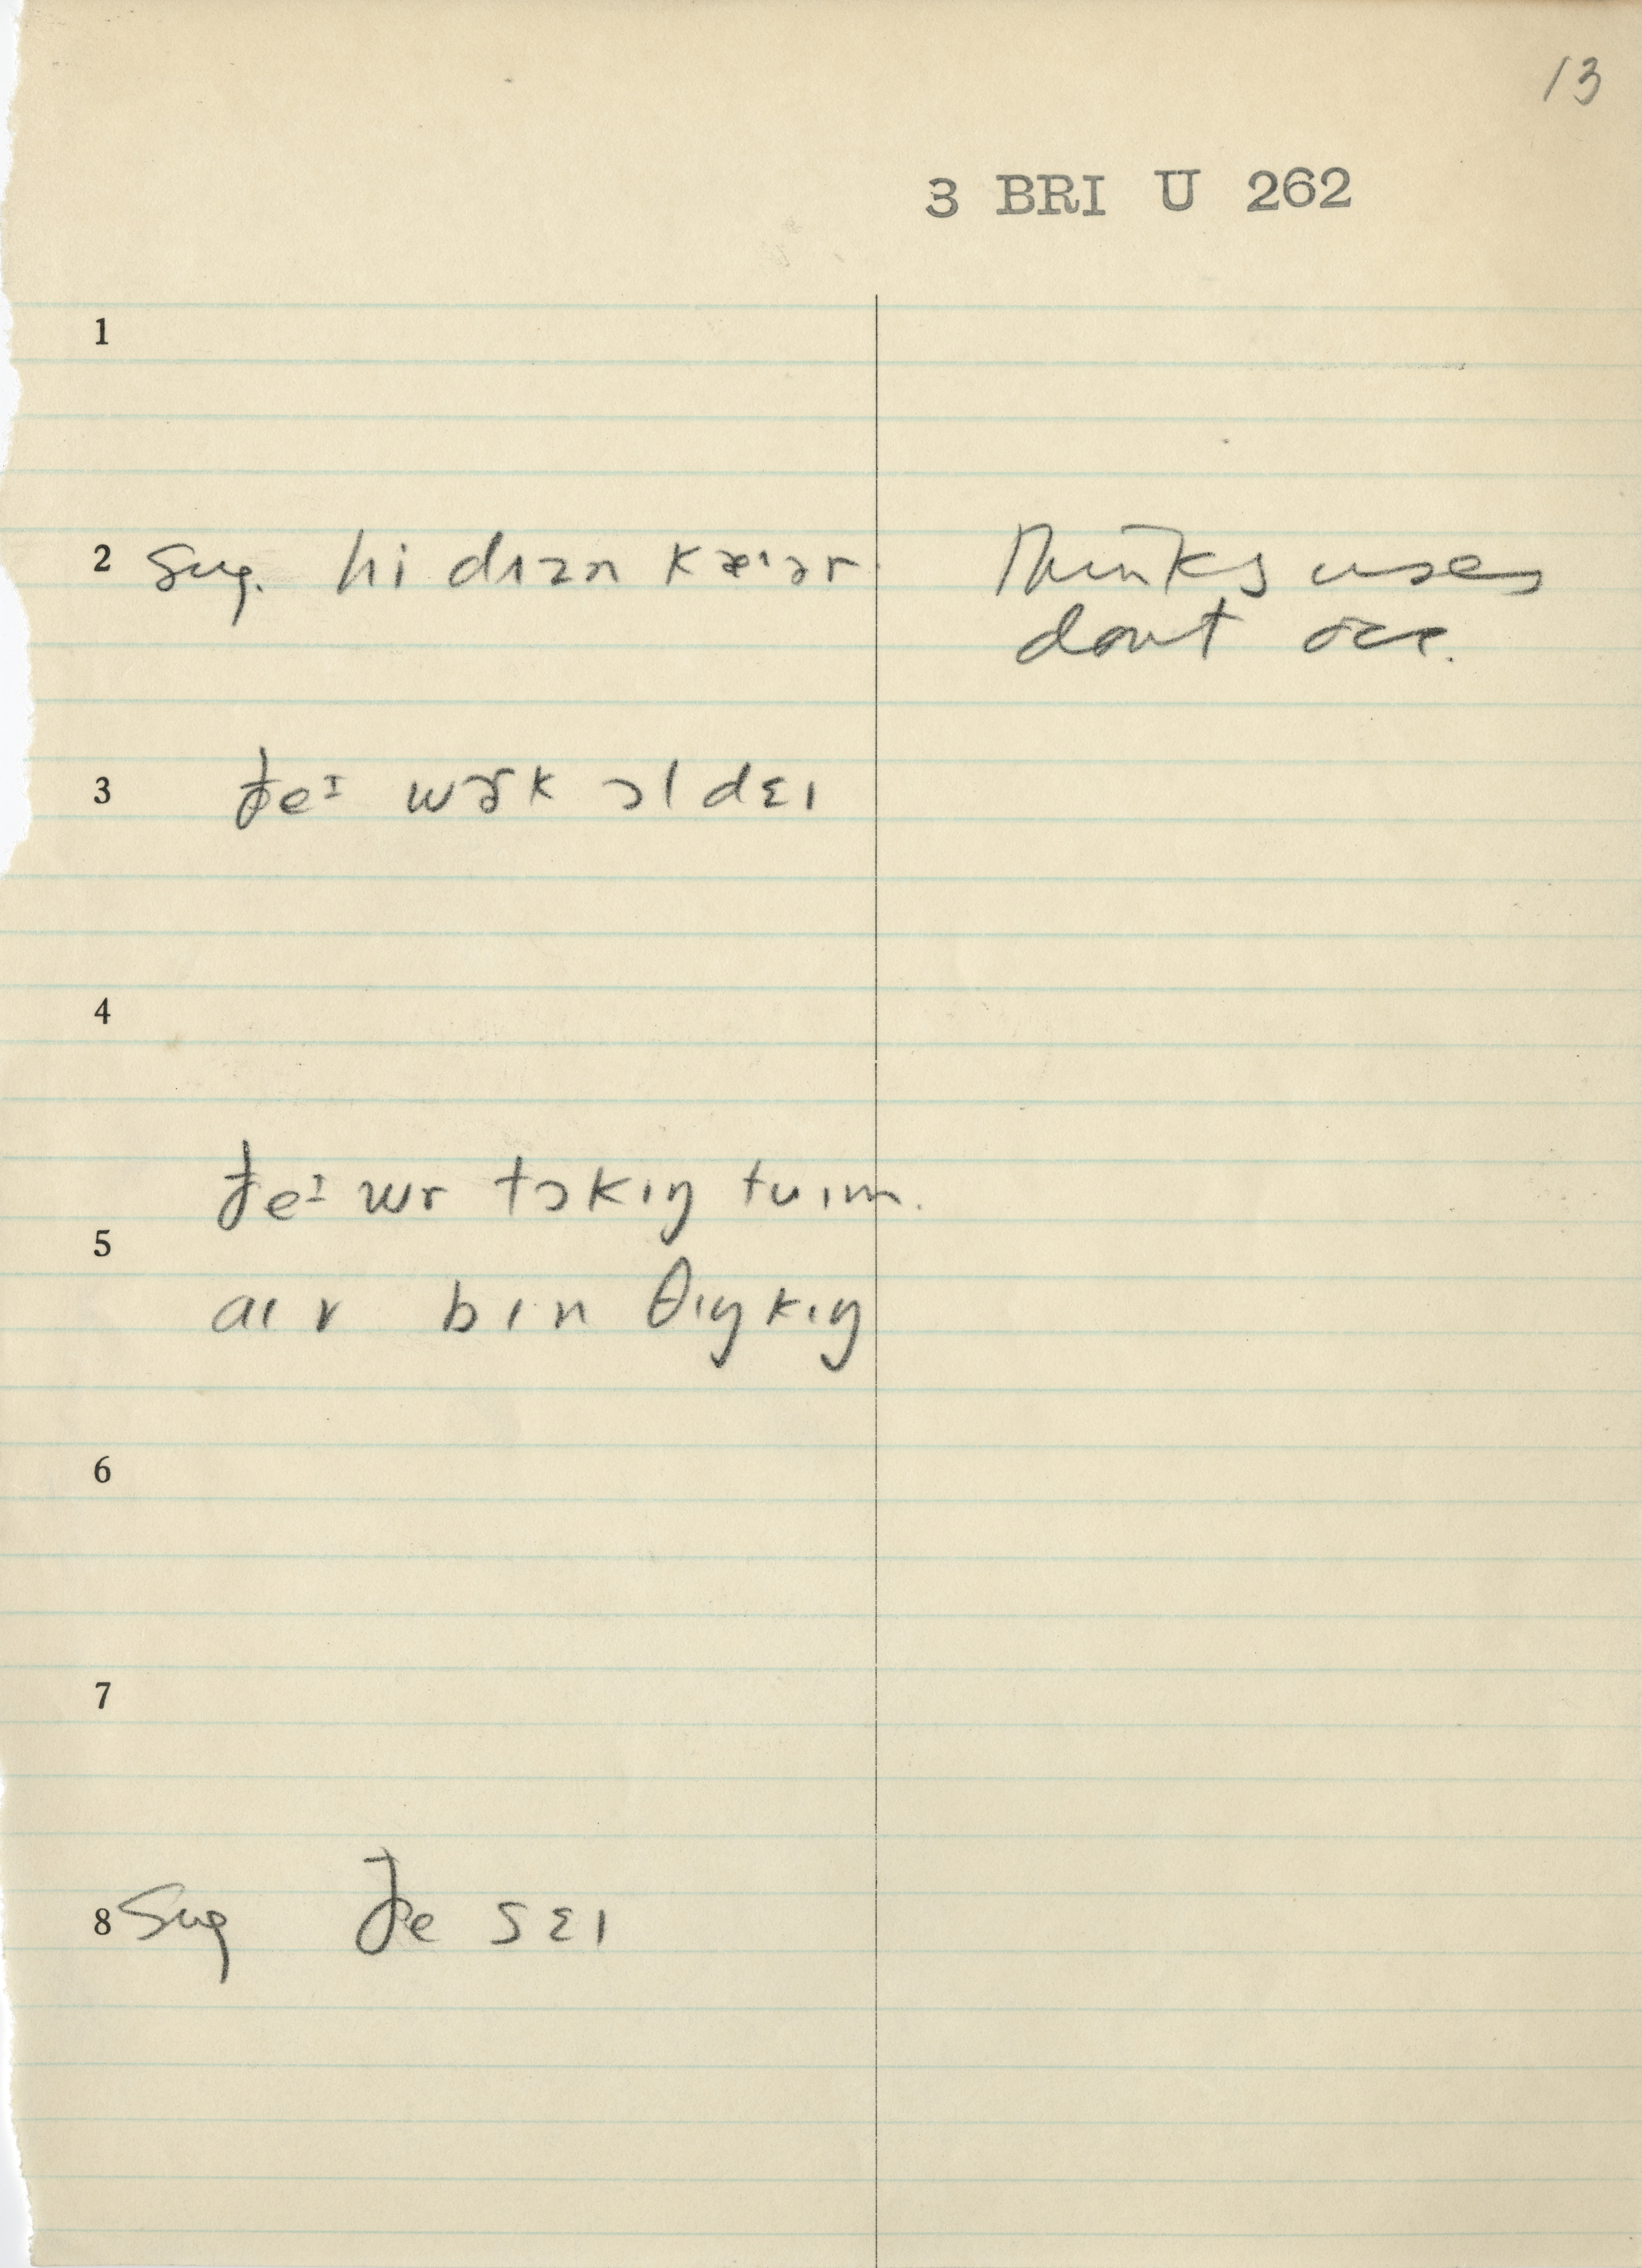 13
3 BRI U 262
1
2 sug. hi dɪzn kæ·ər Thinks uses
dont occ.
3 ðeᶦ wɝk ɔl dɛɪ
4
ðeᶦ wr tɔkɪŋ tu ɪm.
5
aɪ v bɪn θɪŋkɪŋ
6
7
8 Sug ðe sɛɪ